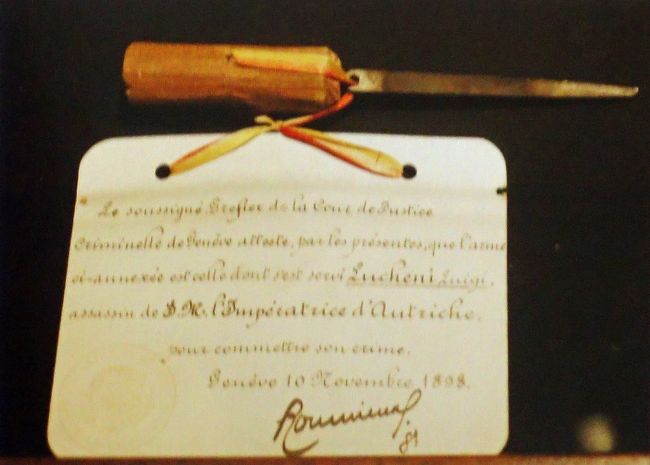 Le soussigné Greffier de la Cour de Justice
Criminelle de Genève atteste, par les présentes, que l'arme
ci-annexée est celle dont s'est servi Lucheni Luigi,
assassin de S.M. l'Impératrice d'Autriche,
pour commettre son crime.
Genève 10 Novembre 1898.